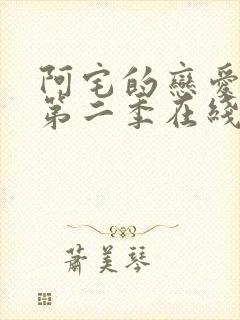 阿宅的戀愛
第二季在綫
蕭美琴